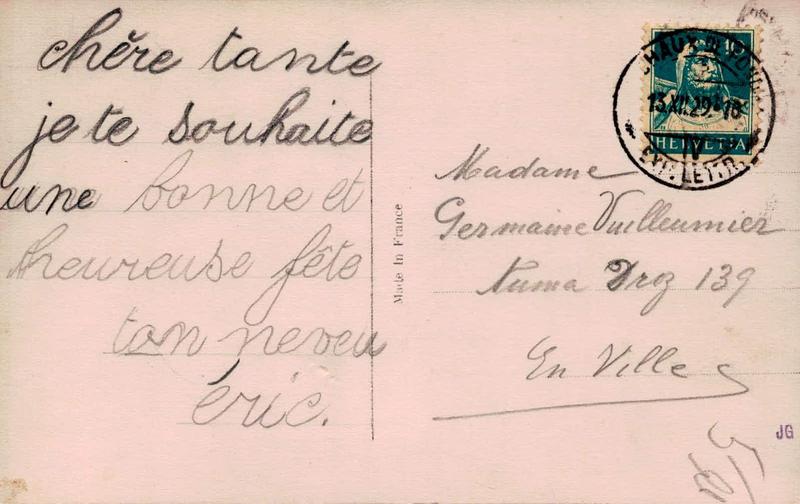 chère tante
je te souhaite
une bonne et
heureuse fête
ton neveu
éric.
Made in France
13.XII.29.-18
IV
HELVETIA
Madame
Germaine Vuilleumier
Numa Droz 139
En Ville
JG